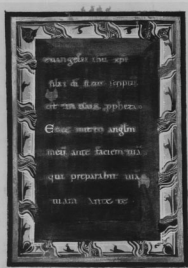 euangelii ihu xpi
filii di sicut
est in isaia ppheta
Ecce mitto anglm
meū ante faciem tuā
qui preparabit uiā
tuam ante te